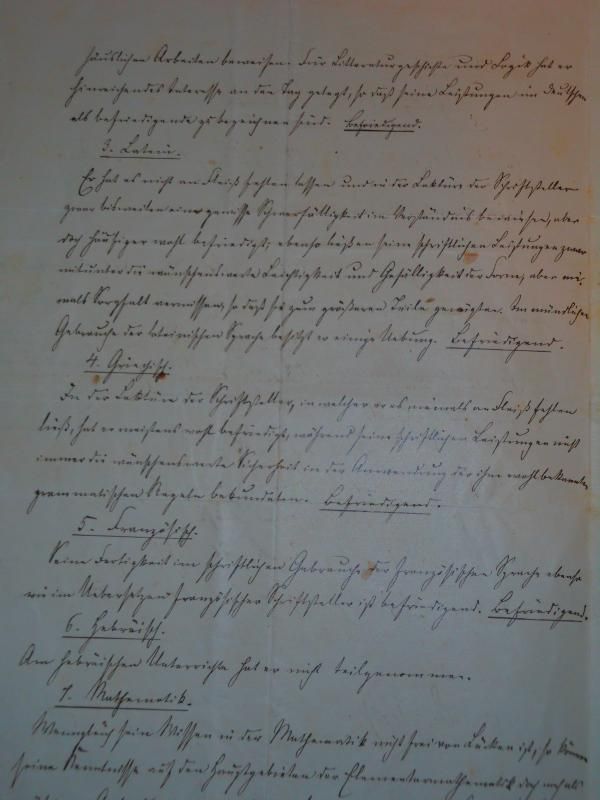 häuslichen Arbeiten beweisen. Für Litteraturgeschichte und Logik hat er
hinreichendes Interesse an den Tag gelegt, so daß seine Leistungen im Deutschen
als befriedigende zu bezeichnen sind. Befriedigend.
3. Latein.
Er hat es nicht an Fleiß fehlen lassen und in der Lektüre der Schriftsteller
zwar bisweilen eine gewisse Schwerfälligkeit im Verständnis bewiesen, aber
doch häufiger wohl befriedigt; ebenso ließen seine schriftlichen Leistungen zwar
mitunter die wünschenswerte Leichtigkeit und Gefälligkeit der Form, aber nie-
mals Sorgfalt vermissen, so daß sie zum größeren Teile genügten. Im mündlichen
Gebrauche der lateinischen Sprache besitzt er einige Uebung. Befriedigend.
4. Griechisch.
In der Lektüre der Schriftsteller, in welcher er es niemals an Fleiß fehlen
ließ, hat er meistens wohl befriedigt, während seine schriftlichen Leistungen nicht
immer die wünschenswerte Sicherheit in der Anwendung der ihm wohlbekannten
grammatischen Regeln bekundeten. Befriedigend.
5. Französisch.
Seine Fertigkeit im schriftlichen Gebrauche der französischen Sprache ebenso
wie im Uebersetzen französischer Schriftsteller ist befriedigend. Befriedigend.
6. Hebräisch.
Am hebräischen Unterrichte hat er nicht teilgenommen.
7. Mathematik.
Wenngleich sein Wissen in der Mathematik nicht frei von Lücken ist, so können
seine Kenntnisse auf den Hauptgebieten der Elementarmathematik doch noch als